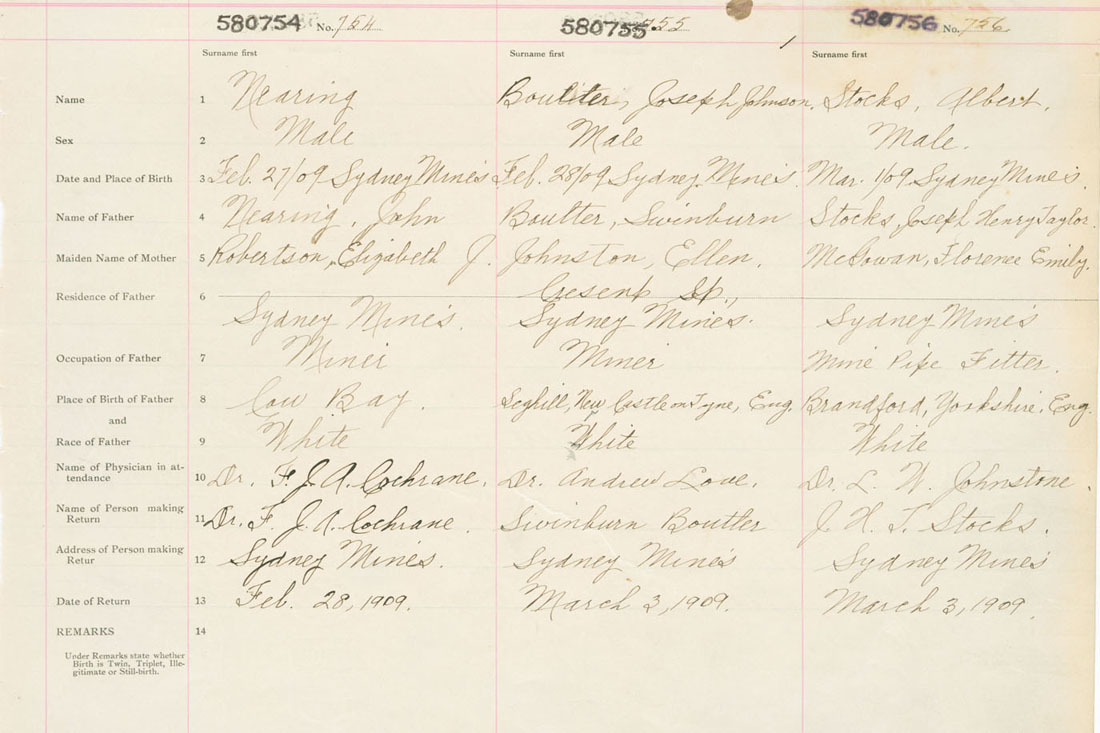 580754 No. 754 580755 755 580756 No. 756
Surname first Surname first Surname first
Name 1 Nearing Boulter, Joseph Johnson, Stocks, Albert.
Sex 2 Male Male Male.
Date and Place of Birth 3 Feb. 27/09 Sydney Mines Feb. 28/09 Sydney Mines. Mar. 1/09 Sydney Mines.
Name of Father 4 Nearing, John Boulter, Swinburn Stocks, Joseph Henry Taylor.
Maiden Name of Mother 5 Robertson, Elizabeth J. Johnston, Ellen. McGowan, Florence Emily.
Cresent St.,
Residence of Father 6 Sydney Mines. Sydney Mines. Sydney Mines
Occupation of Father 7 Miner Miner Mine Pipe Fitter.
Place of Birth of Father 8 Cow Bay. Seghill, New Castle on Tyne, Eng. Brandford, Yorkshire, Eng.
and
Race of Father 9 White White White
Name of Physician in at-
tendance 10 Dr. F. J. A. Cochrane. Dr. Andrew Love. Dr. L. W. Johnstone.
Name of Person making
Return 11 Dr. F. J. A. Cochrane. Swinburn Boulter J. H. T. Stocks.
Address of Person making
Retur 12 Sydney Mines. Sydney Mines Sydney Mines
Date of Return 13 Feb. 28, 1909. March 3, 1909. March 3, 1909
REMARKS 14
Under Remarks state whether
Birth is Twin, Triplet, Ille-
gitimate or Still-birth.